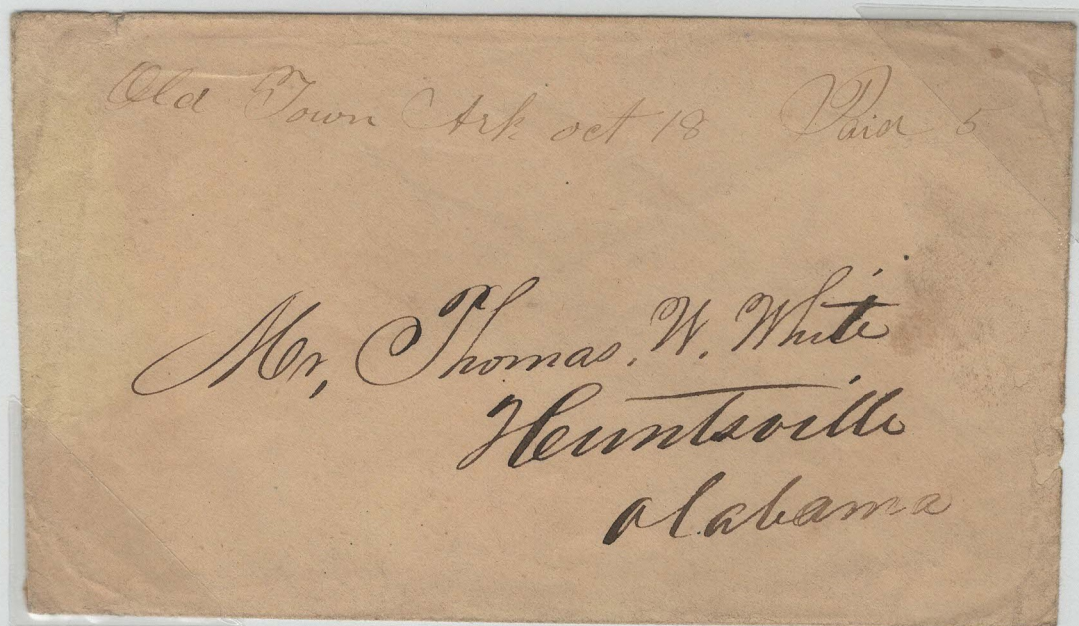 Old Town Ark oct 18 Paid 5
Mr, Thomas. W. White
Huntsville
Alabama